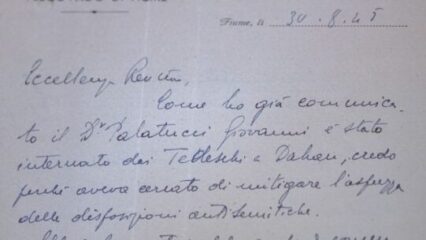 Fiume, li 30.8.45
Eccellenza Rev.ma,
Come ho già comunica-
to il Dr Palatucci Giovanni è stato
internato dai Tedeschi a Dahau, credo
perché aveva cercato di mitigare l'asprezza
delle disposizioni antisemitiche.